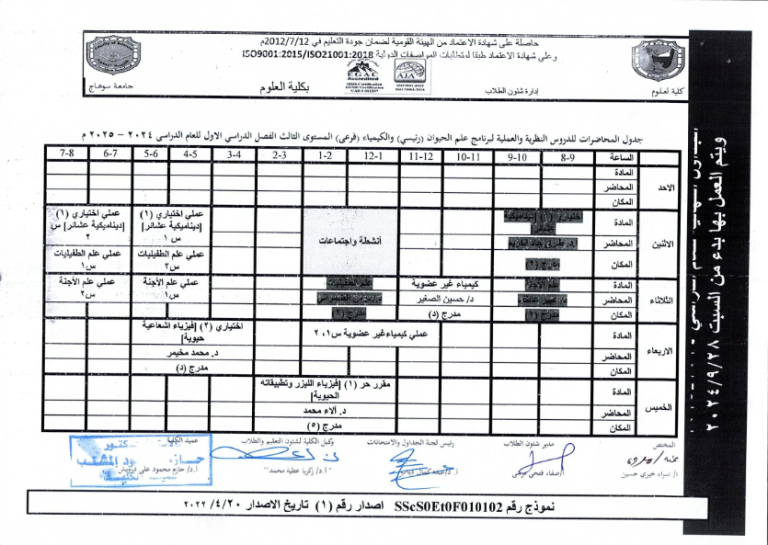 حاصلة على شهادة الاعتماد من الهيئة القومية لضمان جودة التعليم في 2012/7/12م
وعلى شهادة الاعتماد طبقا لمتطلبات المواصفات الدولية ISO9001:2015/ISO21001:2018
جامعة سوهاج
بكلية العلوم
EGAC
Accredited
AJA
إدارة شئون الطلاب
كلية العلوم
جدول المحاضرات للدروس النظرية والعملية لبرنامج علم الحيوان (رئيسي) والكيمياء (فرعي) المستوى الثالث الفصل الدراسي الاول للعام الدراسى ٢٠٢٤ – ٢٠٢٥ م
الساعة 8-9 9-10 10-11 11-12 12-1 1-2 2-3 3-4 4-5 5-6 6-7 7-8
الاحد
المادة
المحاضر
المكان
الاثنين
المادة
المحاضر
المكان
اختياري (١)
مدرج (٢)
أنشطة واجتماعات
عملي اختياري (١)
[ديناميكية عشائر]
س ١
عملي علم الطفيليات
س٢
عملي اختياري (١)
[ديناميكية عشائر] س
٢
عملي علم الطفيليات
س١
الثلاثاء
المادة
المحاضر
المكان
علم الأجنة
مدرج (٢)
كيمياء غير عضوية
د/ حسين الصغير
مدرج (د)
علم الطفيليات
عملي علم الأجنة
س١
عملي علم الأجنة
س٢
الاربعاء
المادة
المحاضر
المكان
عملي كيمياء غير عضوية س١،٢
اختياري (٢) [فيزياء اشعاعية
حيوية]
د. محمد مخيمر
مدرج (د)
الخميس
المادة
المحاضر
المكان
مقرر حر (١) [فيزياء الليزر وتطبيقاته
الحيوية]
د. آلاء محمد
مدرج (٥)
المختص
مدير شئون الطلاب
رئيس لجنة الجداول والامتحانات
وكيل الكلية لشئون التعليم والطلاب
عميد الكلية
خيري حسين
أ.د/ زكريا عطية محمد
أ.د/ حازم محمود علي درويش
نموذج رقم SScS0Et0F010102 اصدار رقم (١) تاريخ الاصدار ٢٠٢٢/٤/٢٠
ويتم العمل بها بدء من السبت ٢٠٢٤/٩/٢٨